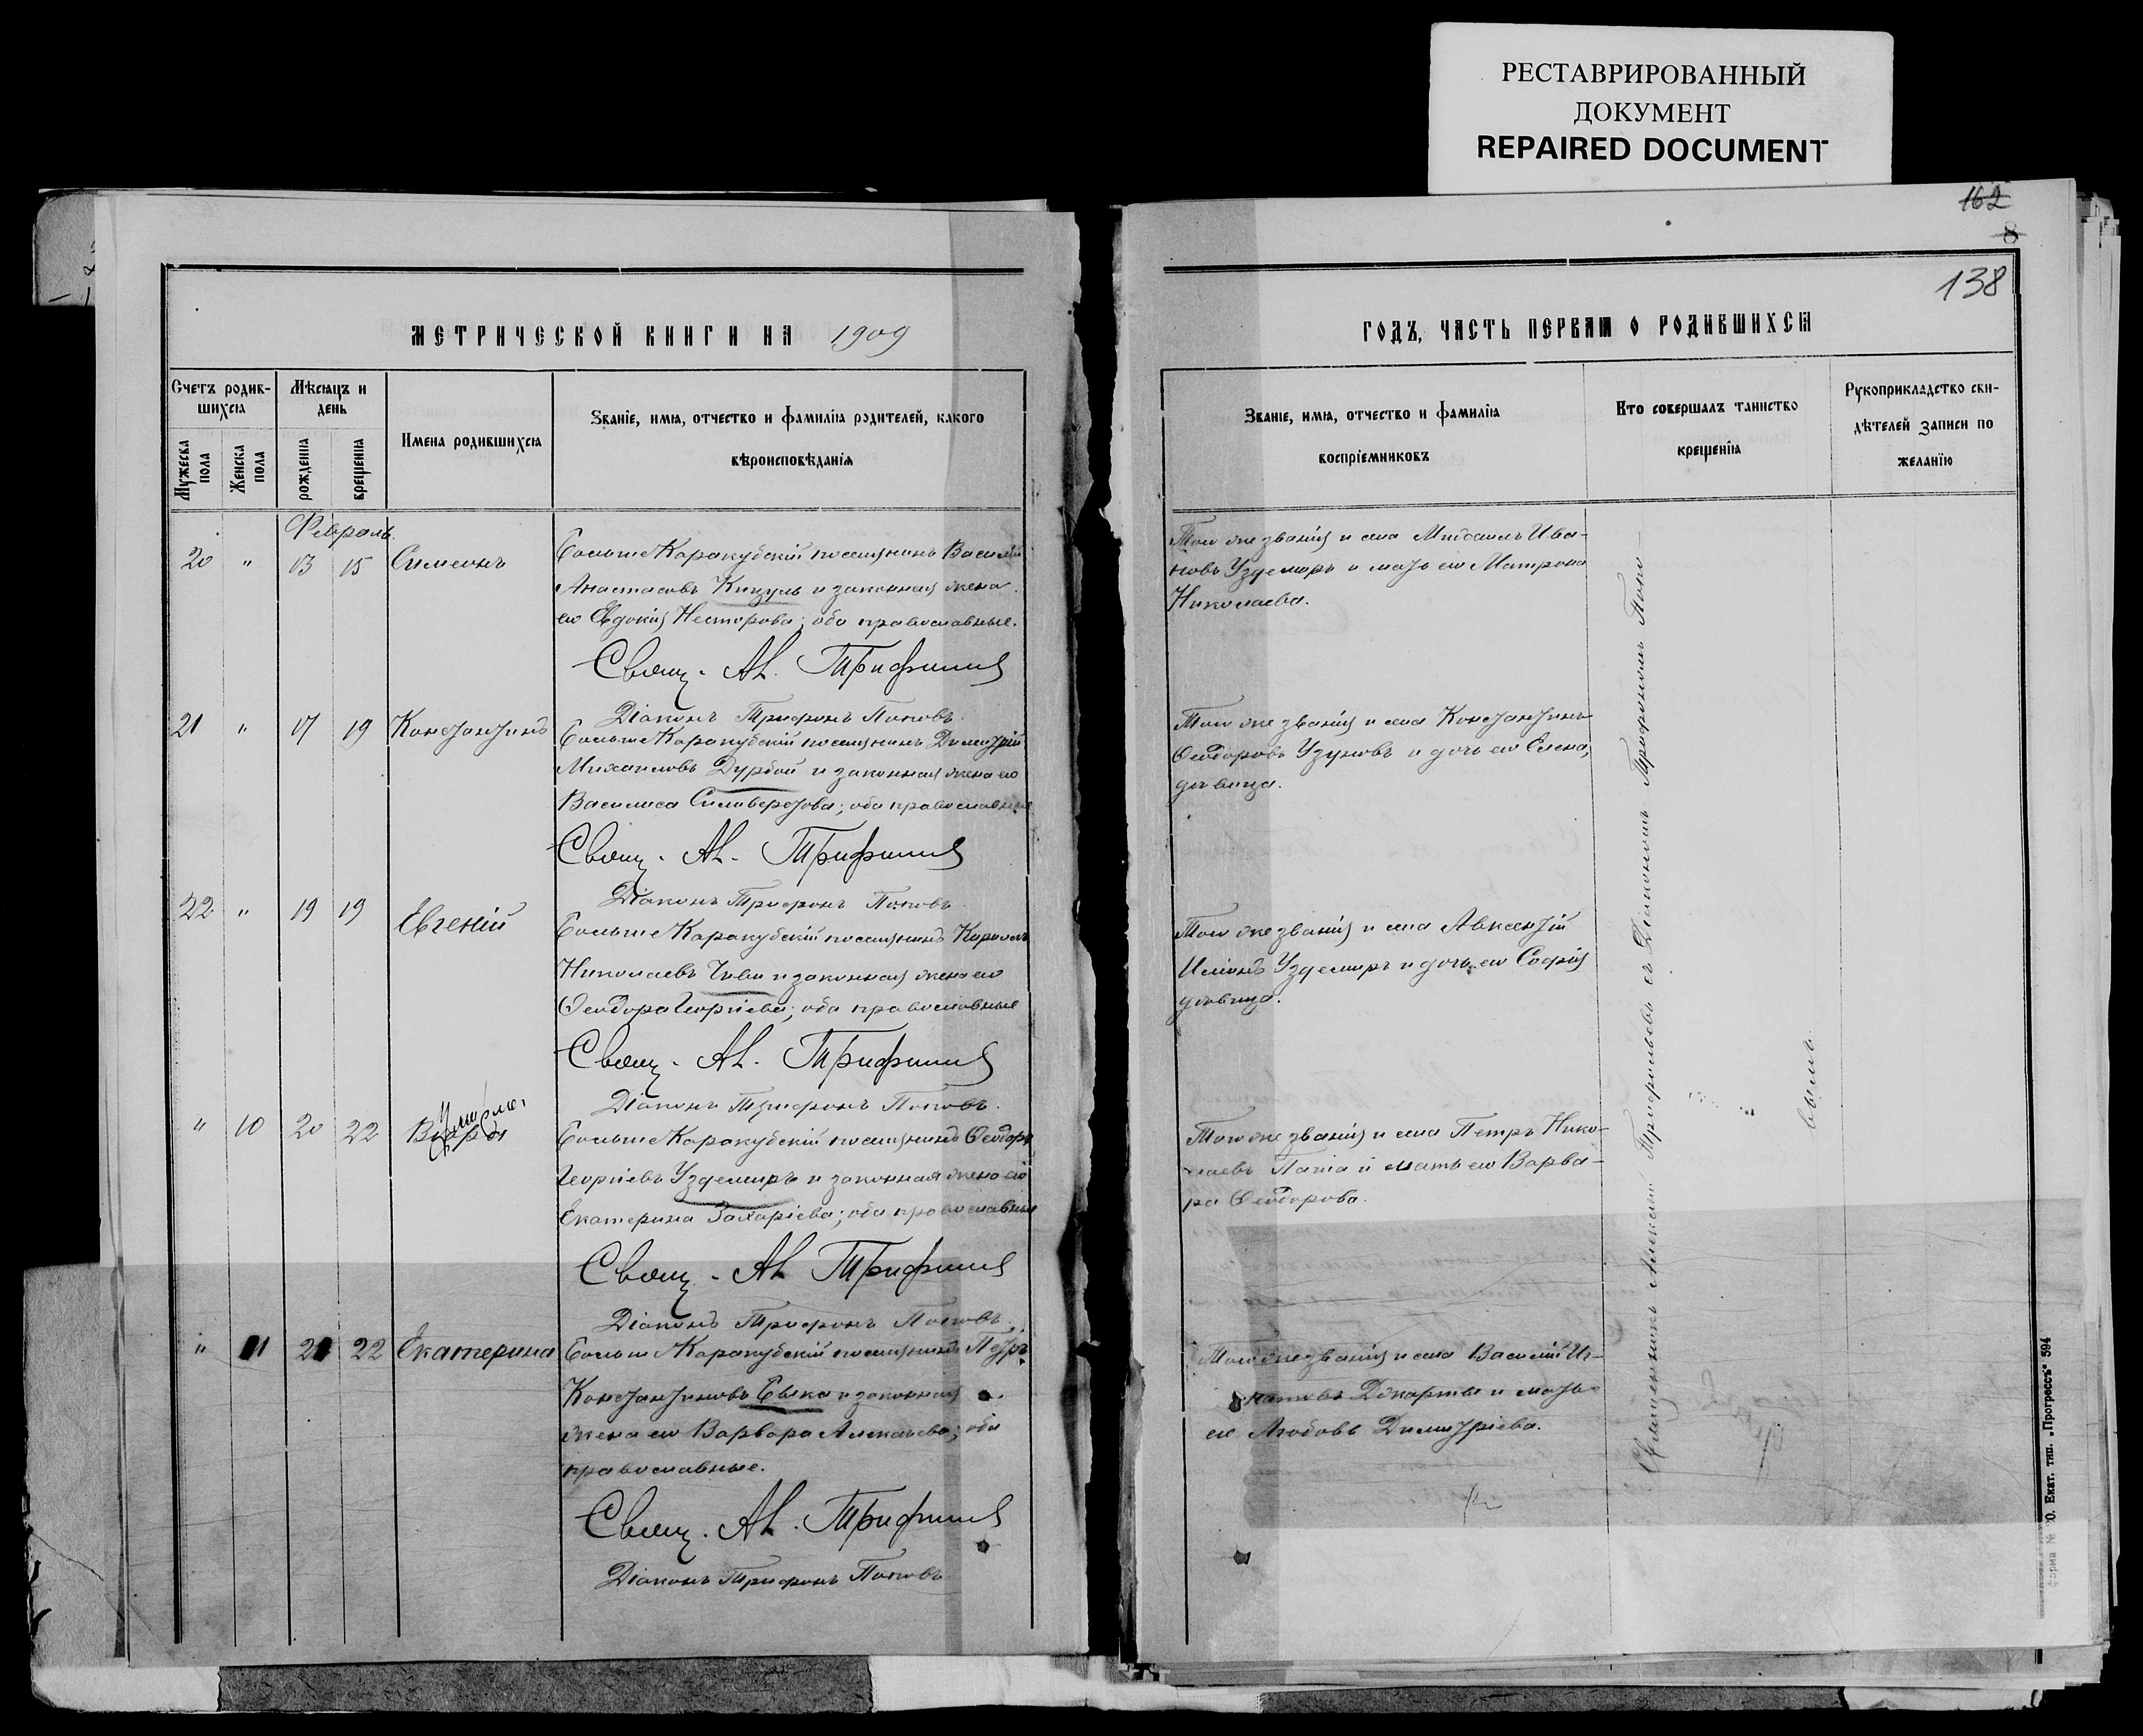 РЕСТАВРИРОВАННЫЙ
ДОКУМЕНТ
REPAIRED DOCUMENT
162
8
138
МЕТРИЧЕСКОЙ КНИГИ НА 1909
Счетъ родив-
шихся
Мѣсяцъ и
день
Мужеска
пола
Женска
пола
рожденія
крещенія
Имена родившихся
Званіе, имя, отчество и фамилія родителей, какого
вѣроисповѣданія
Февраль.
20 " 13 15 Симеонъ
Больше Каракубскій поселянинъ Василій
Анастасовъ Кизуль и законная жена
его Евдокія Несторова; оба православные.
Свящ. Ал. Трифил
Діаконъ Трифонъ Поповъ.
21 " 17 19 Константинъ
Больше Каракубскій поселянинъ Димитрій
Михаиловъ Дурбой и законная жена его
Василиса Сильверстова; оба православные
Свящ. Ал. Трифил
Діаконъ Трифонъ Поповъ.
22 " 19 19 Евгеній
Больше Каракубскій поселянинъ Кириллъ
Николаевъ и законная жена его
Феодора Георгіева; оба православные
Свящ. Ал. Трифил
Діаконъ Трифонъ Поповъ.
" 10 20 22
Умерла.
Больше Каракубскій поселянинъ Феодоръ
Георгіевъ Уздемиръ и законная жена его
Екатерина Захаріева; оба православные
Свящ. Ал. Трифил
Діаконъ Трифонъ Поповъ.
" 11 21 22 Екатерина
Больше Каракубскій поселянинъ Петръ
Константиновъ и законная
жена его Варвара Алексѣева; оба
православные.
Свящ. Ал. Трифил
Діаконъ Трифонъ Поповъ
ГОДЪ, ЧАСТЬ ПЕРВАЯ О РОДИВШИХСЯ
Званіе, имя, отчество и фамилія
воспріемниковъ
Кто совершалъ таинство
крещенія
Рукоприкладство сви-
дѣтелей записи по
желанію
Того же званія и села Михаилъ Ива-
новъ Уздемиръ и мать его Матрона
Николаева.
Того же званія и села Константинъ
Феодоровъ Узуновъ и дочь его Елена,
дѣвица.
Того же званія и села Авксентій
Уздемиръ и дочь его Софія
дѣвица.
Того же званія и села Петръ Нико-
лаевъ Папа и мать его Варва-
ра Феодорова.
Того же званія и села Василій Иг-
натовъ и мать
его Любовь Димитріева.
Священникъ Алексѣй Трифильевъ съ Діакономъ Трифономъ Попо-
вымъ.
Екат. тип. „Прогрессъ" 594